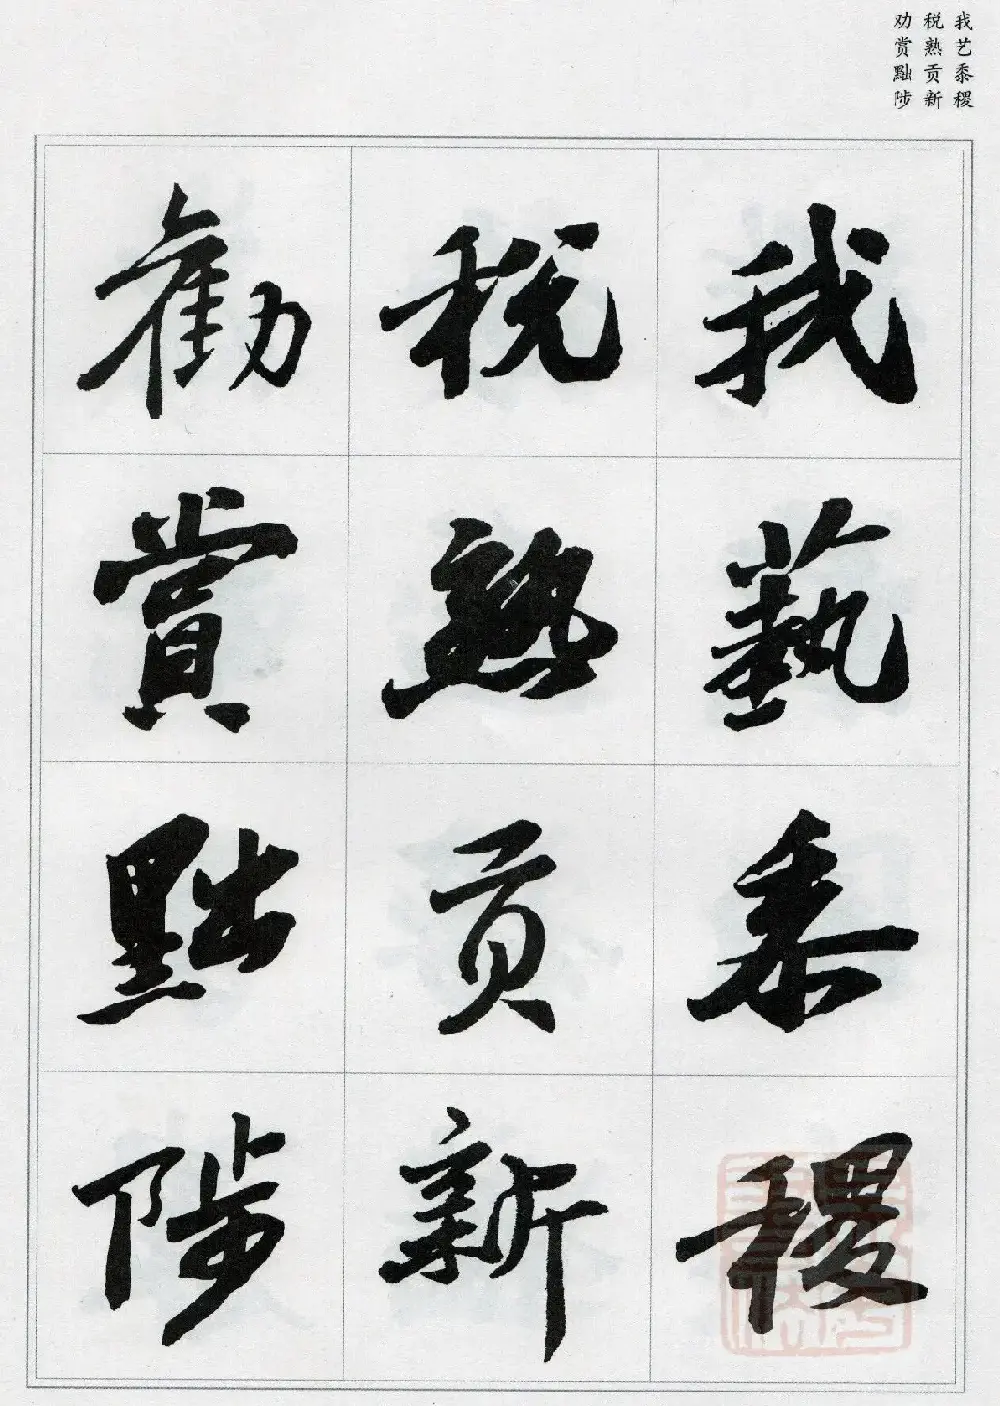 我艺黍稷
税熟贡新
劝赏黜陟
我藝黍稷
税熟贡新
勸賞黜陟